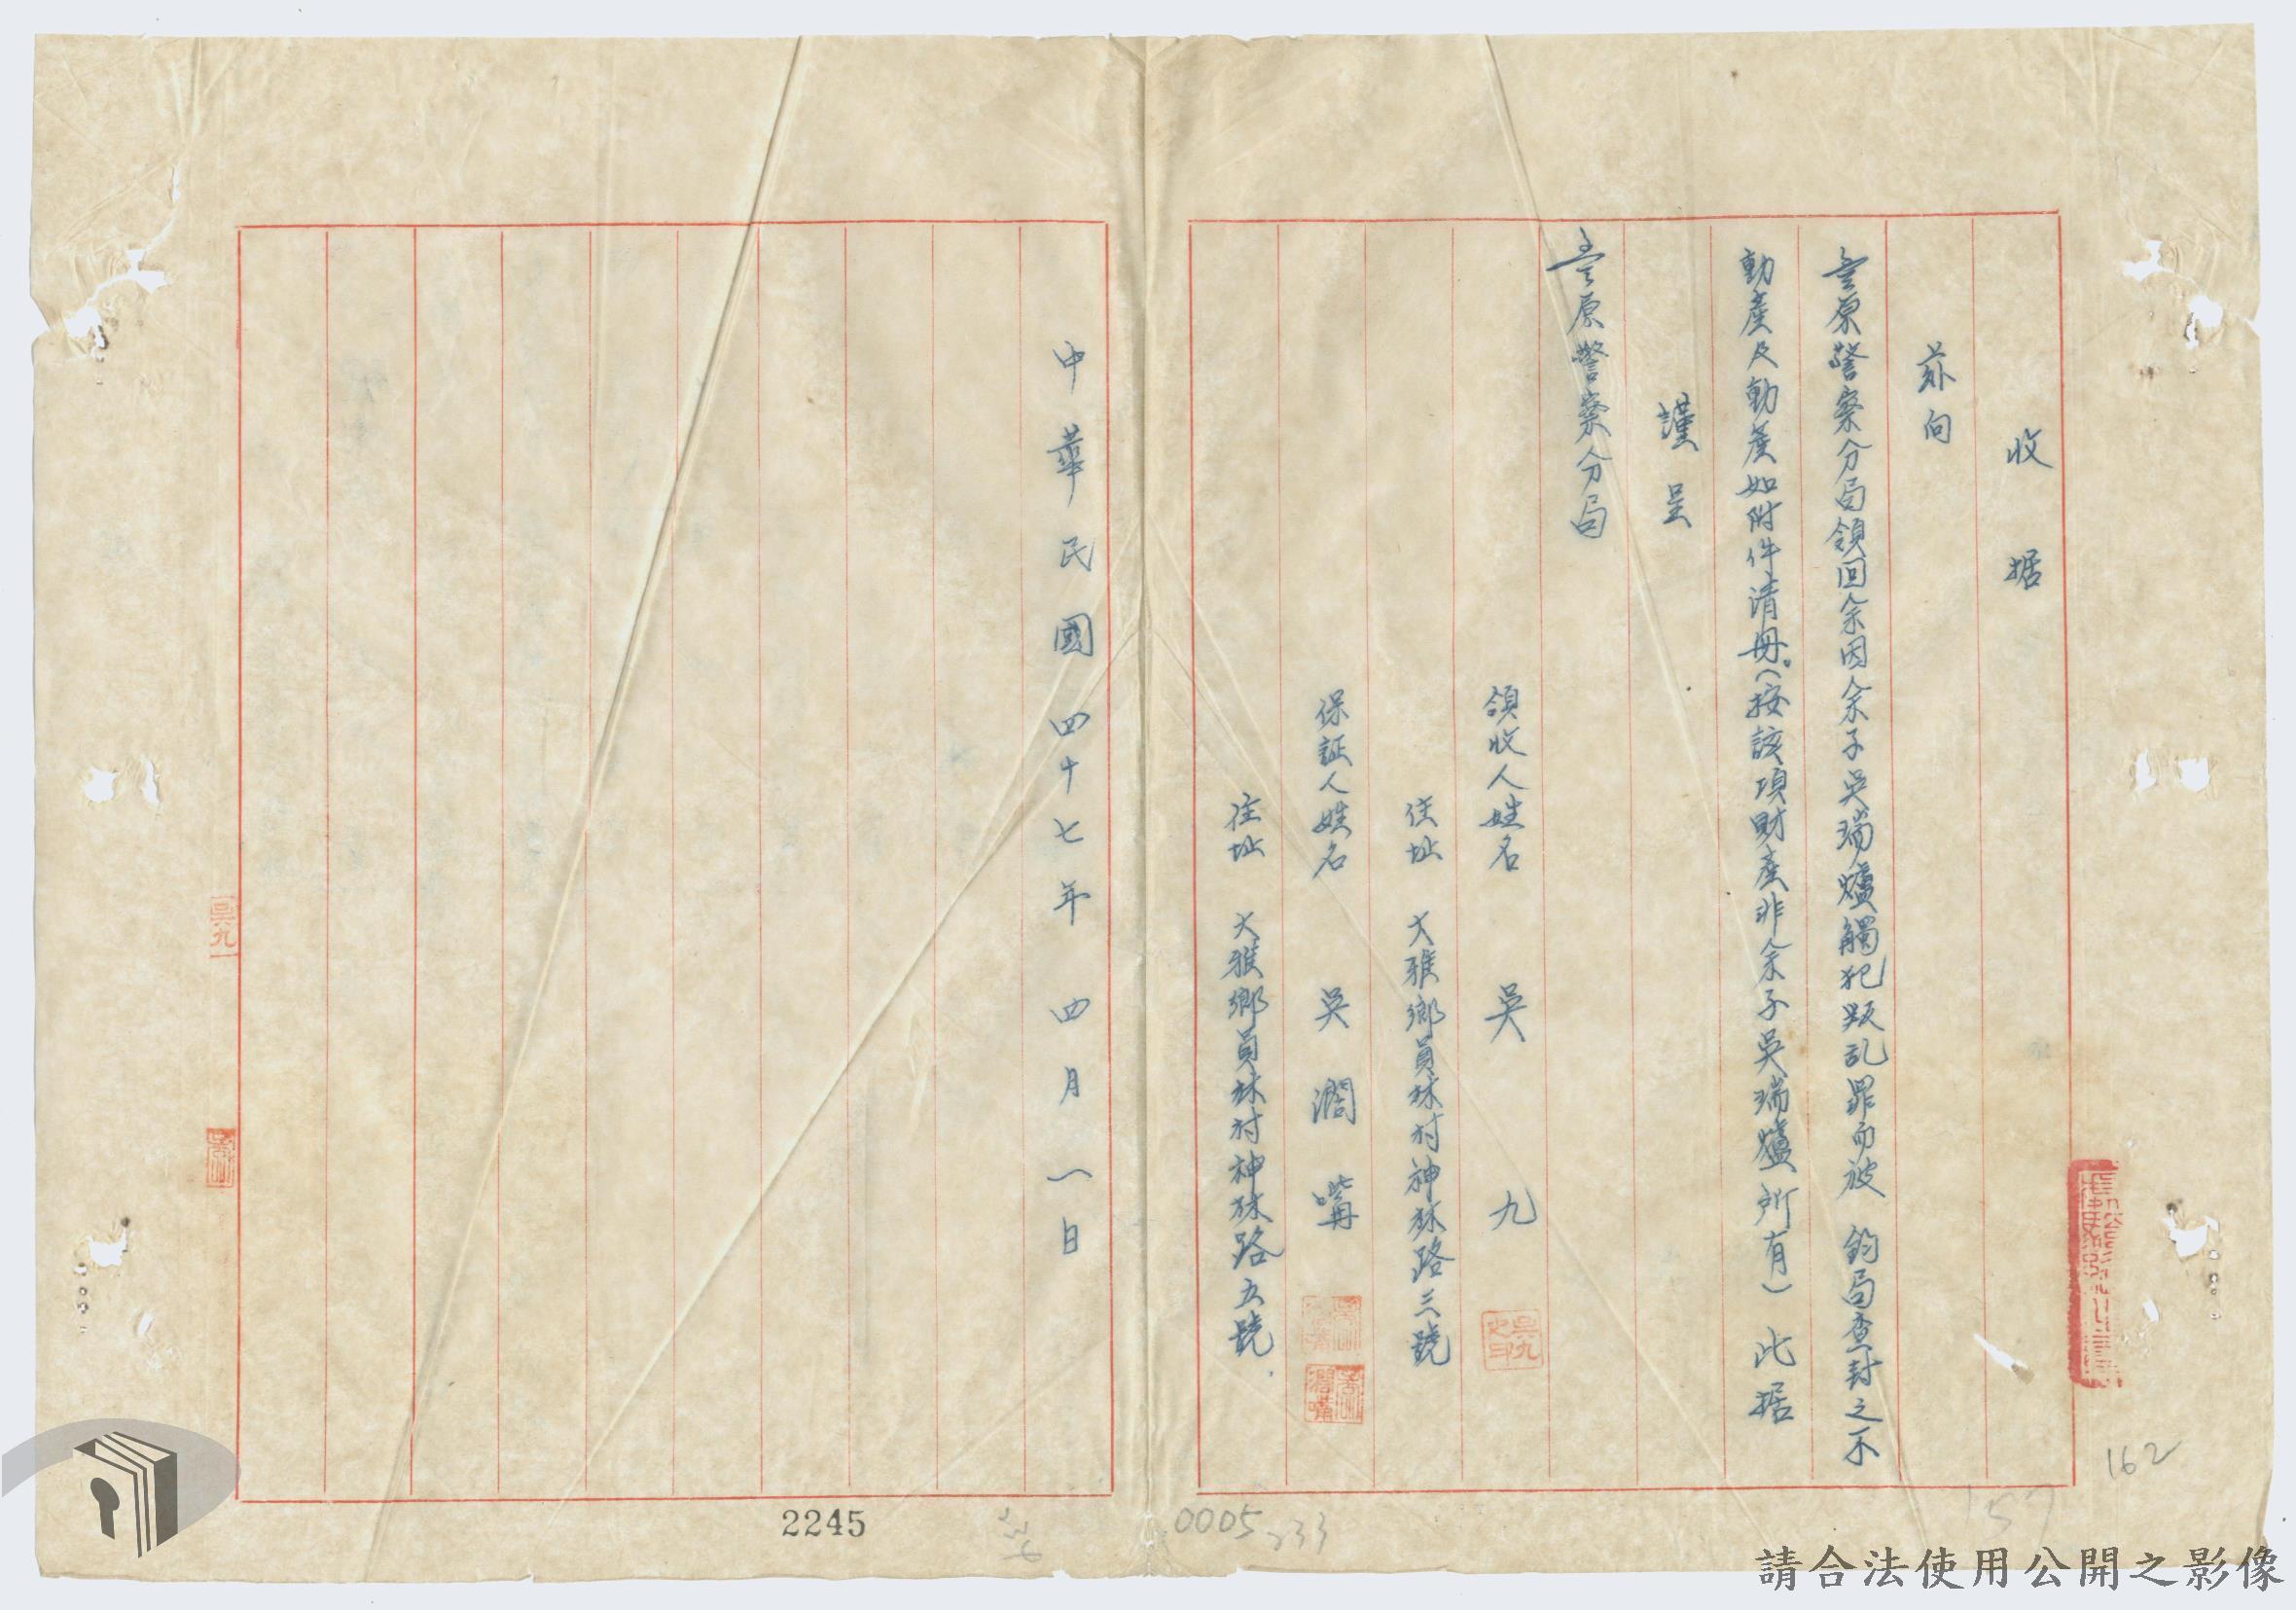 收據
茲向
豐原警察分局領回余因余子吳瑞爐觸犯叛乱罪而被 鈞局查封之不
動產及動產如附件清冊。(按該項財產非余子吳瑞爐所有)此据
謹呈
豐原警察分局
領收人姓名 吳九
住址 大雅鄉員林村神林路三號
保証人姓名 吳濶嘴
住址 大雅鄉員林村神林路五號
吳九之印
中華民國四十七年四月一日
吳九
2245
0005
233
162
157
請合法使用公開之影像